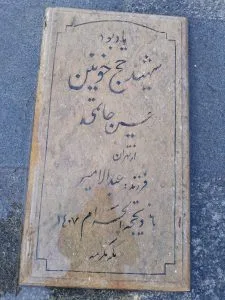 یادبود
شهید حج خونین
حاتمی
از تهران
فرزند: عبدالامیر
۶ ذیحجه الحرام ۱۴۰۷
مکه مکرمه